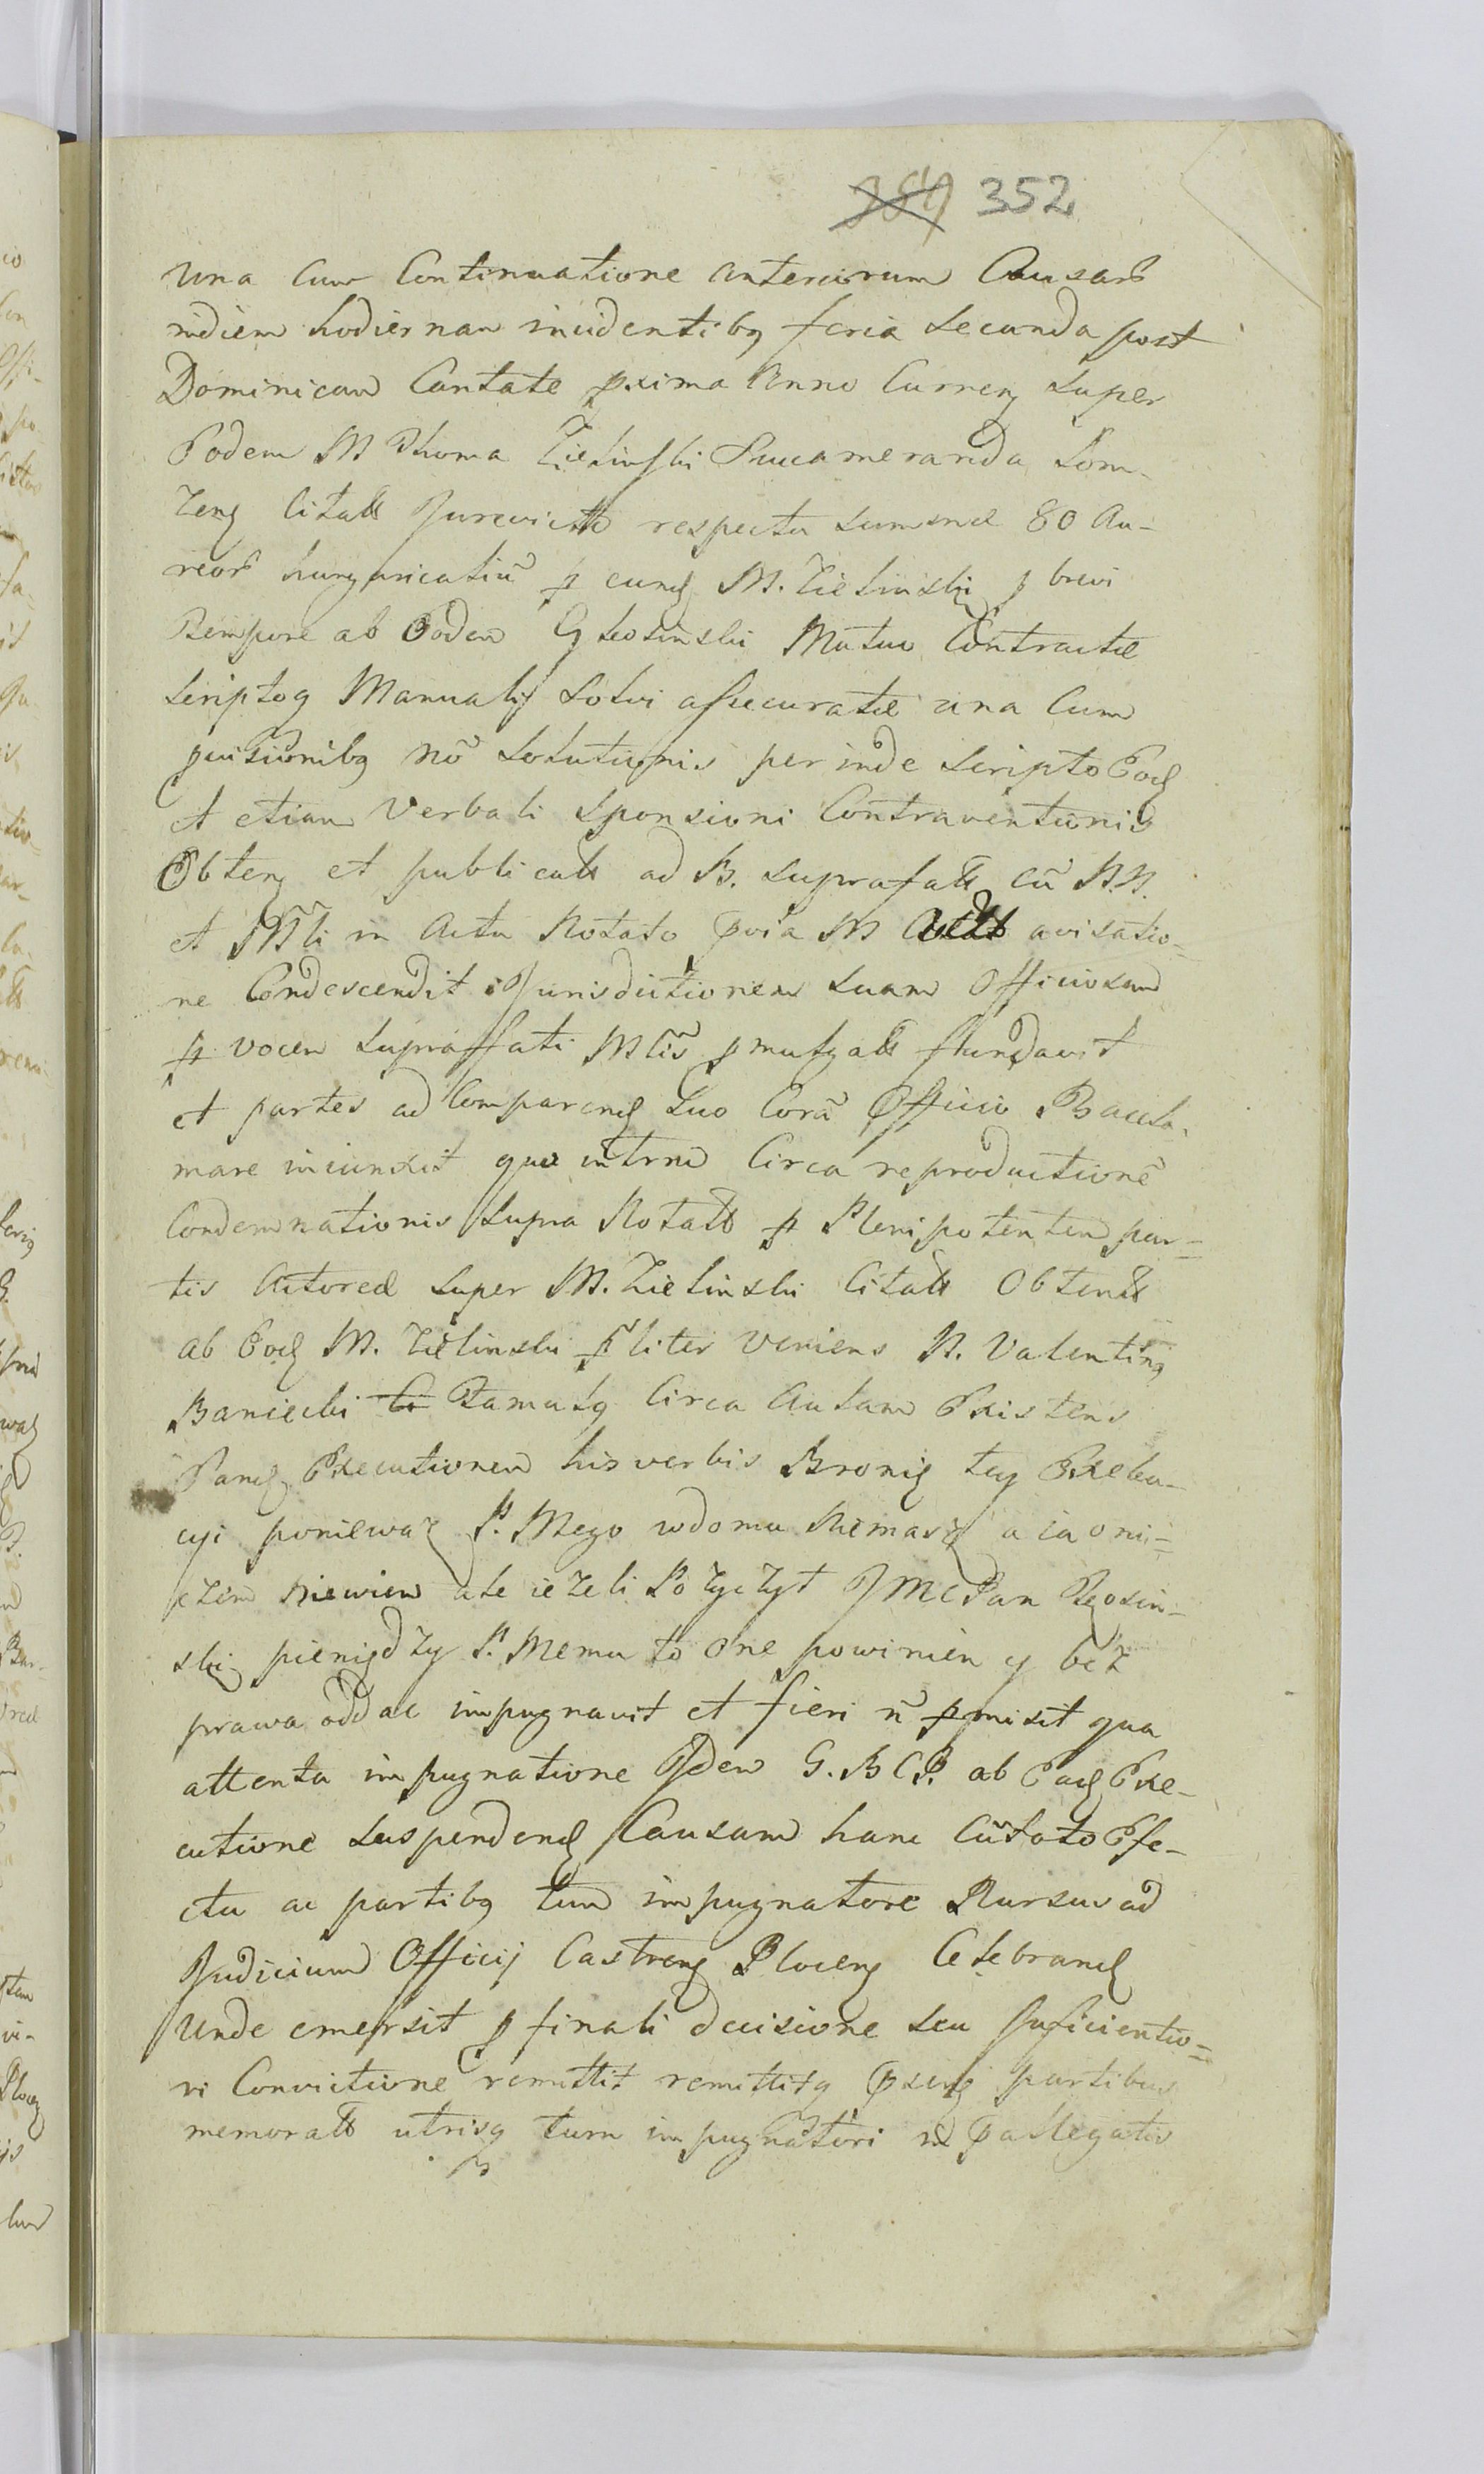 384 352
una cum Continuatione anteriorum Causar
indiem hodiernam incidentibq feria Secunda post
Dominicam Cantate pxima Anno Curren Super
Eodem M Thoma Zielinski Succamerarida Lom-
Zen Citatt Jurevicto respectu Summæ 80 Au-
reor hungaricaliũ p eund M. Zielinski p brevi
Tempore ab Eodem Głosinski Mutuo Contractæ
Scriptoq Manuali Solvi assecuratæ una Cum
pœisionibq nõ Solutionis perinde Scripto Eod
et etiam Verbali Sponsioni Contraventionis
Obten et publicatt ad N. Suprafatt cũ N.N.
et Mli in Actu Notato quia M avisatio-
ne Condescendit Jurisdictionem Suam Officiosam
p vocem Supraffati Mlis pmulgatt ffundavit
et partes ad Comparend Suo Corã Officio Baccla-
mare iniunxit quo intrm Circa reproductionẽ
Condemnationis Supra Notatt p Plenipotentem par-
tis Actoreæ Super M. Zielinski Citatt Obtentt
ab Eod M. Zielinski pliter Veniens N. Valentinq
Baniecki Famulq Circa Aulam Existens
Eand Executionem his verbis Bronię tey Exeku-
cyi poniewaz P. Mego wdomu Niemasz a ia oni-
czem niewiem ale iezeli Pozyczył JMC Pan Głosin-
ski pieniędzy P. Memu to One powinien y bez
prawa oddac impugnavit et fieri ñ pmisit qua
attenta impugnatione Jdem G. B C P. ab Ead Exe-
cutione Suspendend Causam hanc Cũ toto Effe-
ctu ac partibq tum impugnatore Rursus ad
Judicium Officij Castren Plocen Celebrand
Unde emersit p finali decisione Seu Suficientio-
ri Convictione remittit remittitq partibus
memoratt utrisq tum impugnatori allegatis